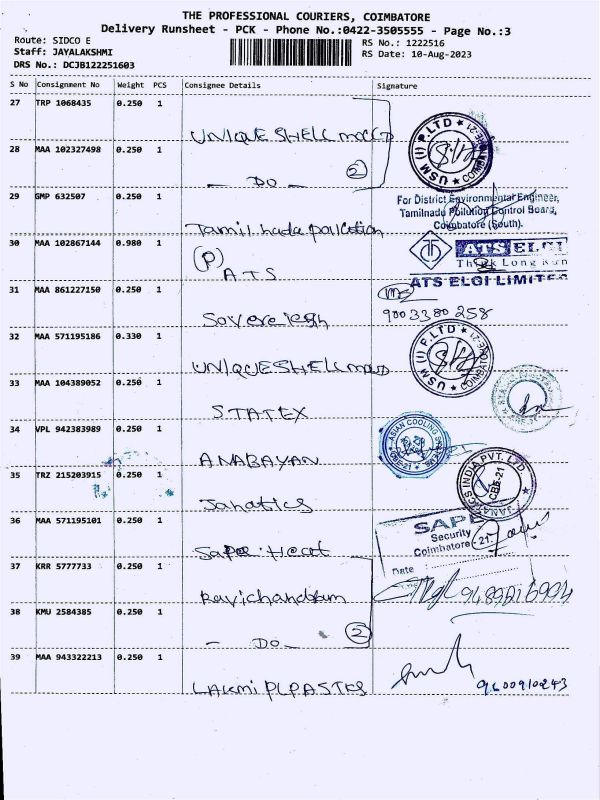 THE PROFESSIONAL COURIERS, COIMBATORE
Delivery Runsheet - PCK - Phone No.:0422-3505555 - Page No.:3
Route: SIDCO E
Staff: JAYALAKSHMI
DRS No.: DCJB122251603
RS No.: 1222516
RS Date: 10-Aug-2023
S No Consignment No Weight PCS Consignee Details Signature
27 TRP 1068435 0.250 1
UNIQUE SHELL MOULD
28 MAA 102327498 0.250 1
- DO - 2
USM (I) P.LTD ★ COIMBATORE-21 ★
29 GMP 632507 0.250 1
Tamil nadu pollution
For District Environmental Engineer,
Tamilnadu Pollution Control Board,
Coimbatore (South).
30 MAA 102867144 0.980 1
(P) ATS
ATS ELGI
ATS ELGI LIMITED
31 MAA 861227150 0.250 1
Sovereiegh
9003380 258
32 MAA 571195186 0.330 1
UNIQUE SHELL MOULD
USM (I) P.LTD ★ COIMBATORE-21 ★
33 MAA 104389052 0.250 1
STATEX
34 VPL 942383989 0.250 1
ANABAYAN
ASIAN COOLING
35 TRZ 215203915 0.250 1
Janatics
JANATICS INDIA PVT. LTD.
CBE-21
36 MAA 571195101 0.250 1
Sape Heat
SAPE
Security
Coimbatore - 21.
Date :
37 KRR 5777733 0.250 1
Ravichandran
38 KMU 2584385 0.250 1
- DO - 2
39 MAA 943322213 0.250 1
LAKMI PLPASTES
9600910243